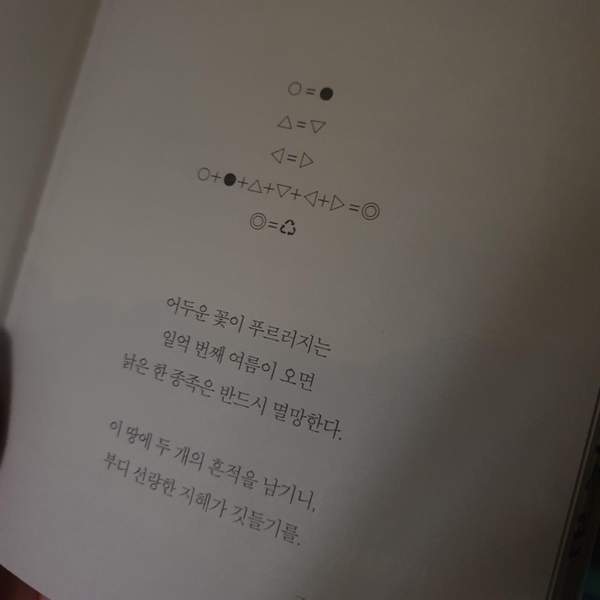 ○=●
△=▽
◁=▷
○+●+△+▽+◁+▷=◎
◎=♺
어두운 꽃이 푸르러지는
일억 번째 여름이 오면
낡은 한 종족은 반드시 멸망한다.
이 땅에 두 개의 흔적을 남기니,
부디 선량한 지혜가 깃들기를.